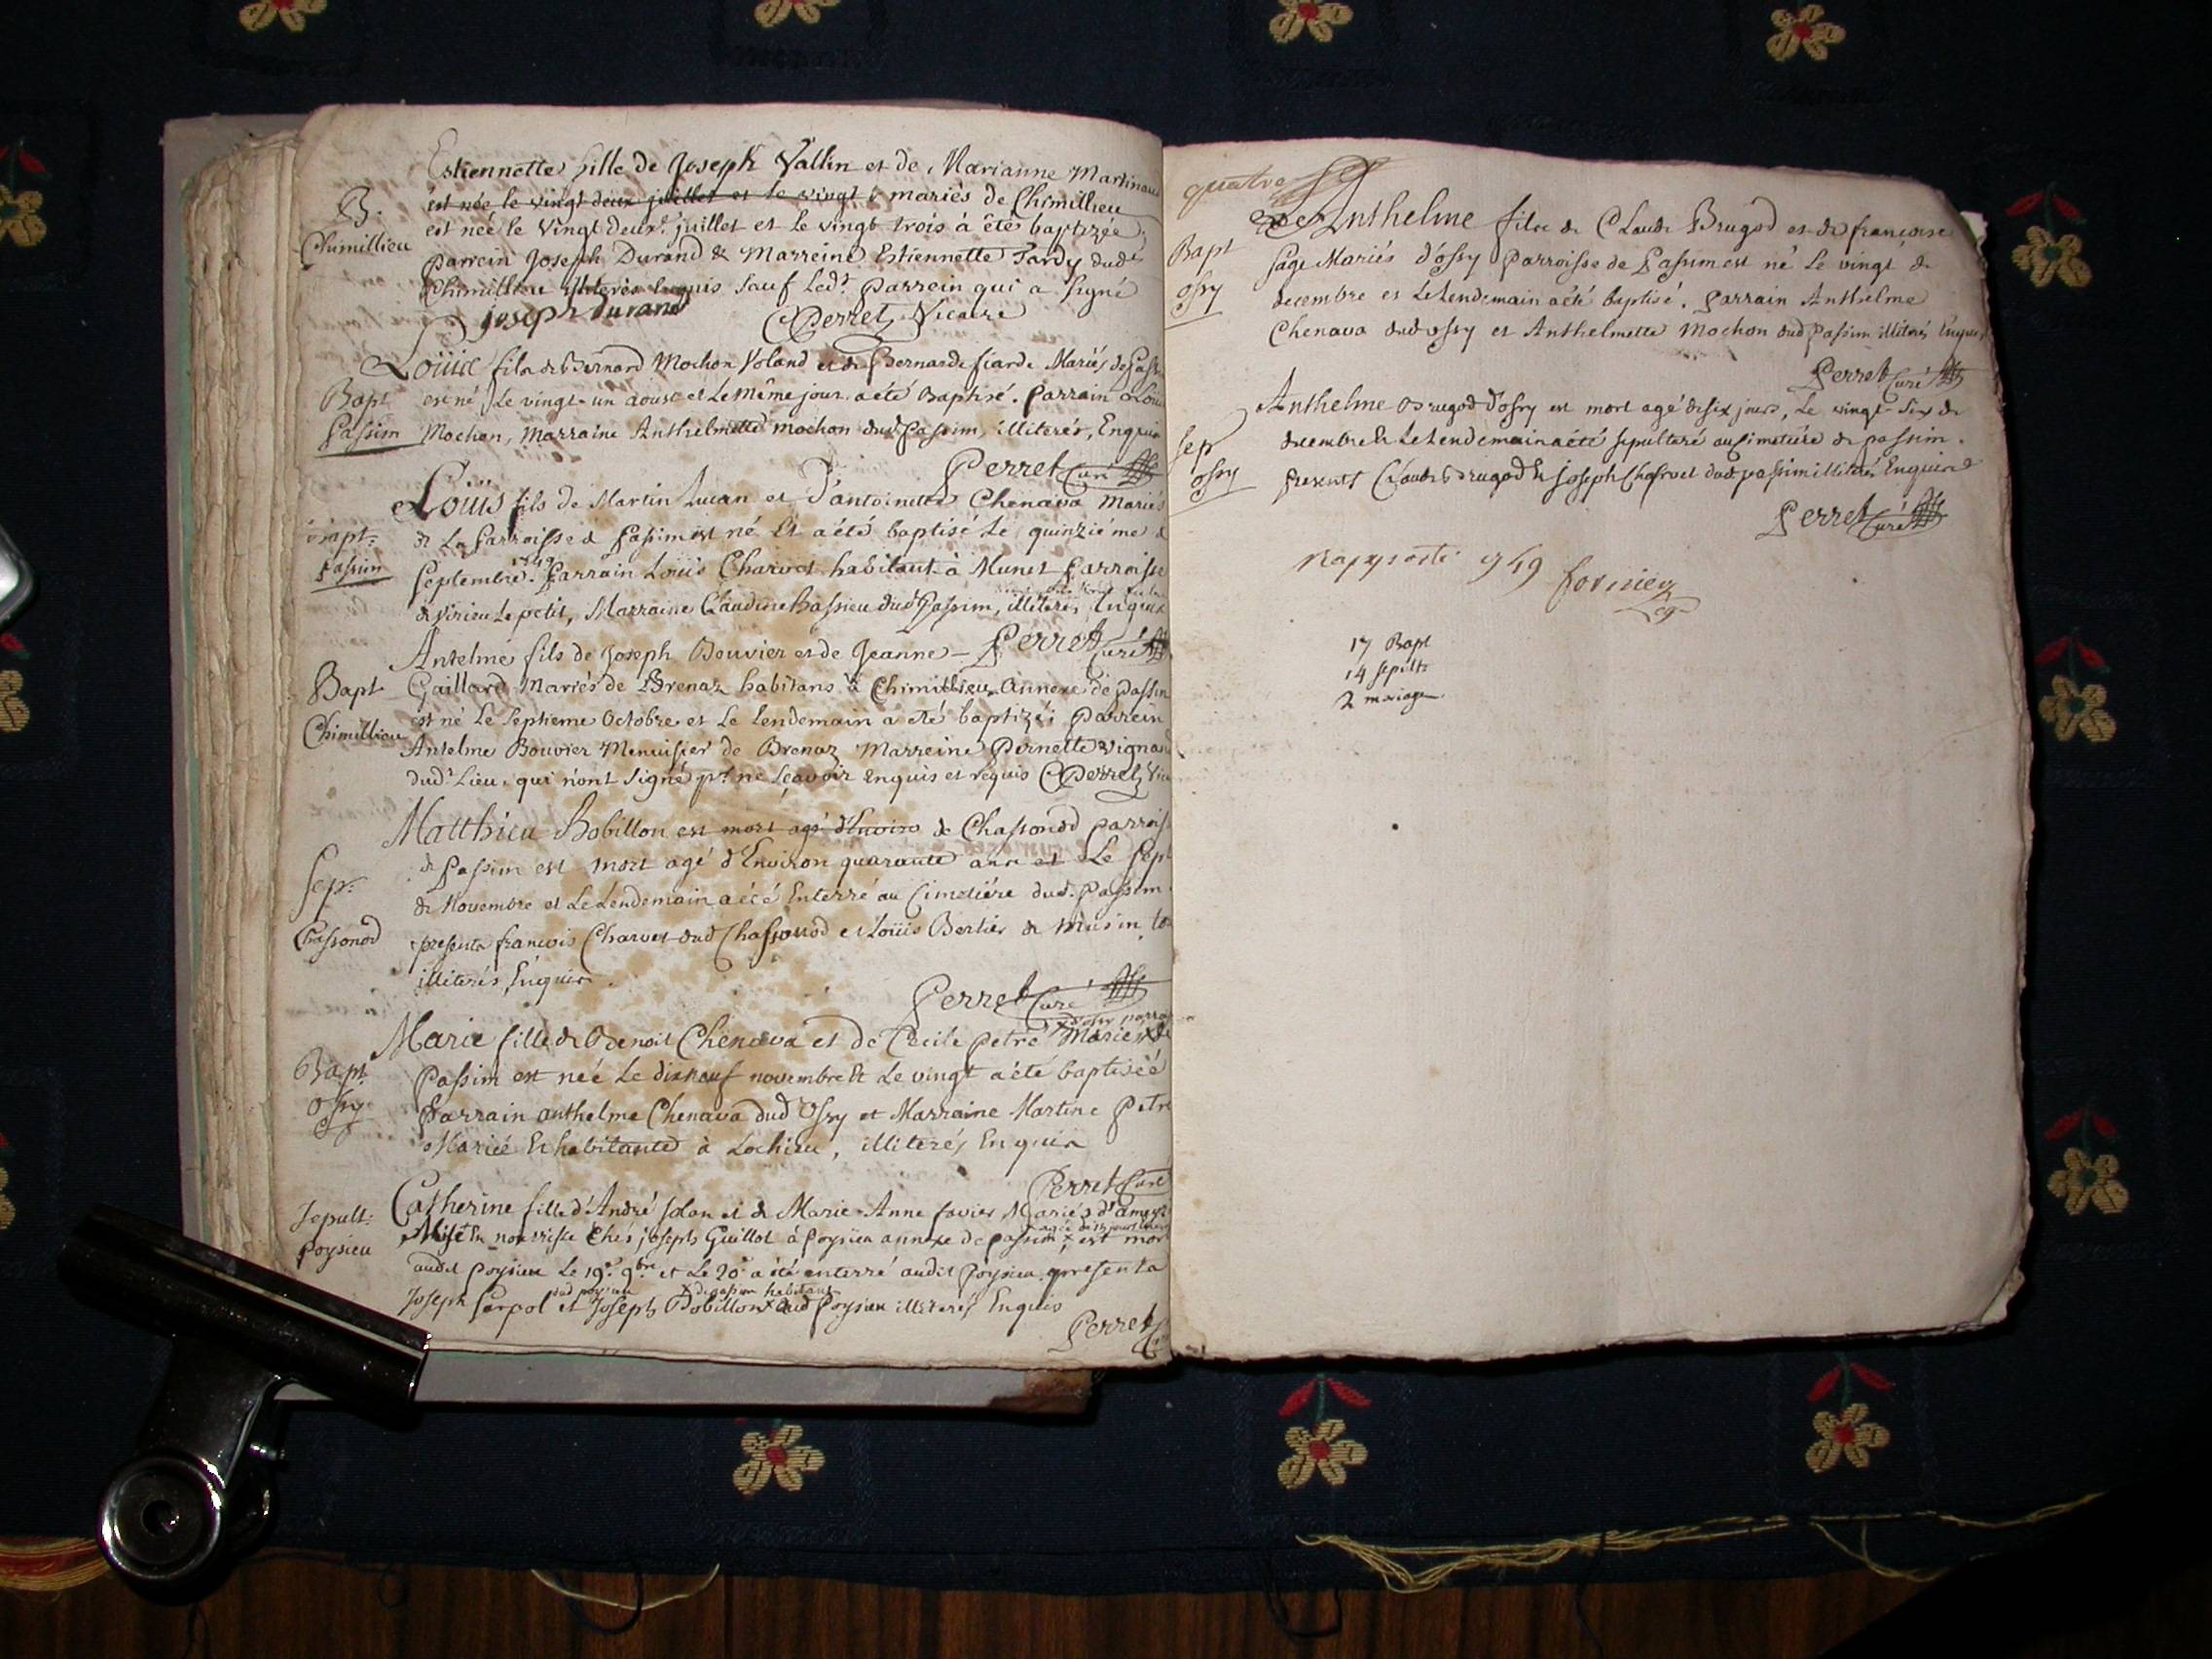 Estiennette fille de Joseph Vallin et de Marianne Martinand
est née le vingt deux juillet et le vingt mariés de Chimillieu
B.
Chimillieu
est née le vingt deux. juillet et le vingt trois à êté baptizée.
parrein Joseph Durand & Marreine Estiennette Tardy dudt
Chimillieu illiterés enquis sauf led.t parrein qui a signé
joseph durand
Perret Vicaire
Loüis fils de Bernard Mochon Voland et de Bernarde fiarde Mariés de Pass
Bapt
Passim
est né Le vingt-un aoust et Le même jour a été Baptisé. Parrain Loui
Mochon, Marraine Anthelmette Mochon dud Passim, illiterés, Enquis
Perret Curé
Loüis fils de Martin Lucan et D'antoinette Chenava Mariés
Bapt:
Passim
de La Parroisse de Passim est né Et a été baptisé Le quinziéme de
1749
Septembre. Parrain Loüis Charvet habitant à Munet Parroisse
de Virieu Le petit, Marraine Claudine Bassieu dud Passim, illiterés, Enquis
Perret Curé
Antelme fils de Joseph Bouvier et de Jeanne
Bapt
Chimillieu
Gaillard Mariés de Brenaz habitans à Chimillieu Annexe de passim
est né Le septieme Octobre et Le lendemain a eté baptizé; Parrein
Antelme Bouvier Menuisier de Brenaz Marreine Pernette Vignand
dud.t Lieu. qui n'ont signé p.r ne sçavoir Enquis et requis Perret Vic
Matthieu Bobillon est mort agé d'Environ de Chassonod parroisse
Sep:
Chassonod
de Passim est mort agé d'Environ quarante ans et Le sept
de Novembre et Le Lendemain a été Enterré au Cimetiére dud. Passim.
presents francois Charvet dud Chassonod et Loüis Bertier de Musin, to
illiterés, Enquis.
Perret Curé
d'ossy parroi
Marie fille de Benoit Chenava et de Cecile Petre Mariés de
Bapt
ossy
Passim est née Le dixneuf novembre Et Le vingt a été baptisée
Parrain anthelme Chenava dud Ossy et Marraine Martine Petre
Mariée Et habitante à Lochieu, illiterés Enquis
Perret Curé
Catherine fille d'André Jolan et de Marie-Anne favier Mariés d'
Sepult:
Poysieu
agée de 15 jours
Mise En nourrisse Chés joseph Guillot à Poysieu annexe de passim, est mor
audit Poysieu Le 19e 9bre et Le 20e a été enterré audit Poysieu. presents
dud poysieu de passim habitant
Joseph Carpol et Joseph Bobillon dud Poysieu illiterés Enquis
Perret
quatre
Anthelme fils de Claude Brugod et de françoise
Bapt
ossy
Sage Mariés d'Ossy Parroisse de Passim est né Le vingt de
decembre et Le Lendemain a été baptisé. Parrain Anthelme
Chenava dud Ossy et Anthelmette Mochon dud Passim illiterés Enquis
Perret Curé
Anthelme Brugod d'Ossy est mort agé de six jours, Le vingt-six de
Sep
ossy
decembre Et Le Lendemain a été sepulturé au Cimetiére de passim.
presents Claude Brugod Et joseph Charvet dud passim illiterés Enquis
Perret Curé
Rapporté 1749
17 Bapt
14 sepults
2 mariages